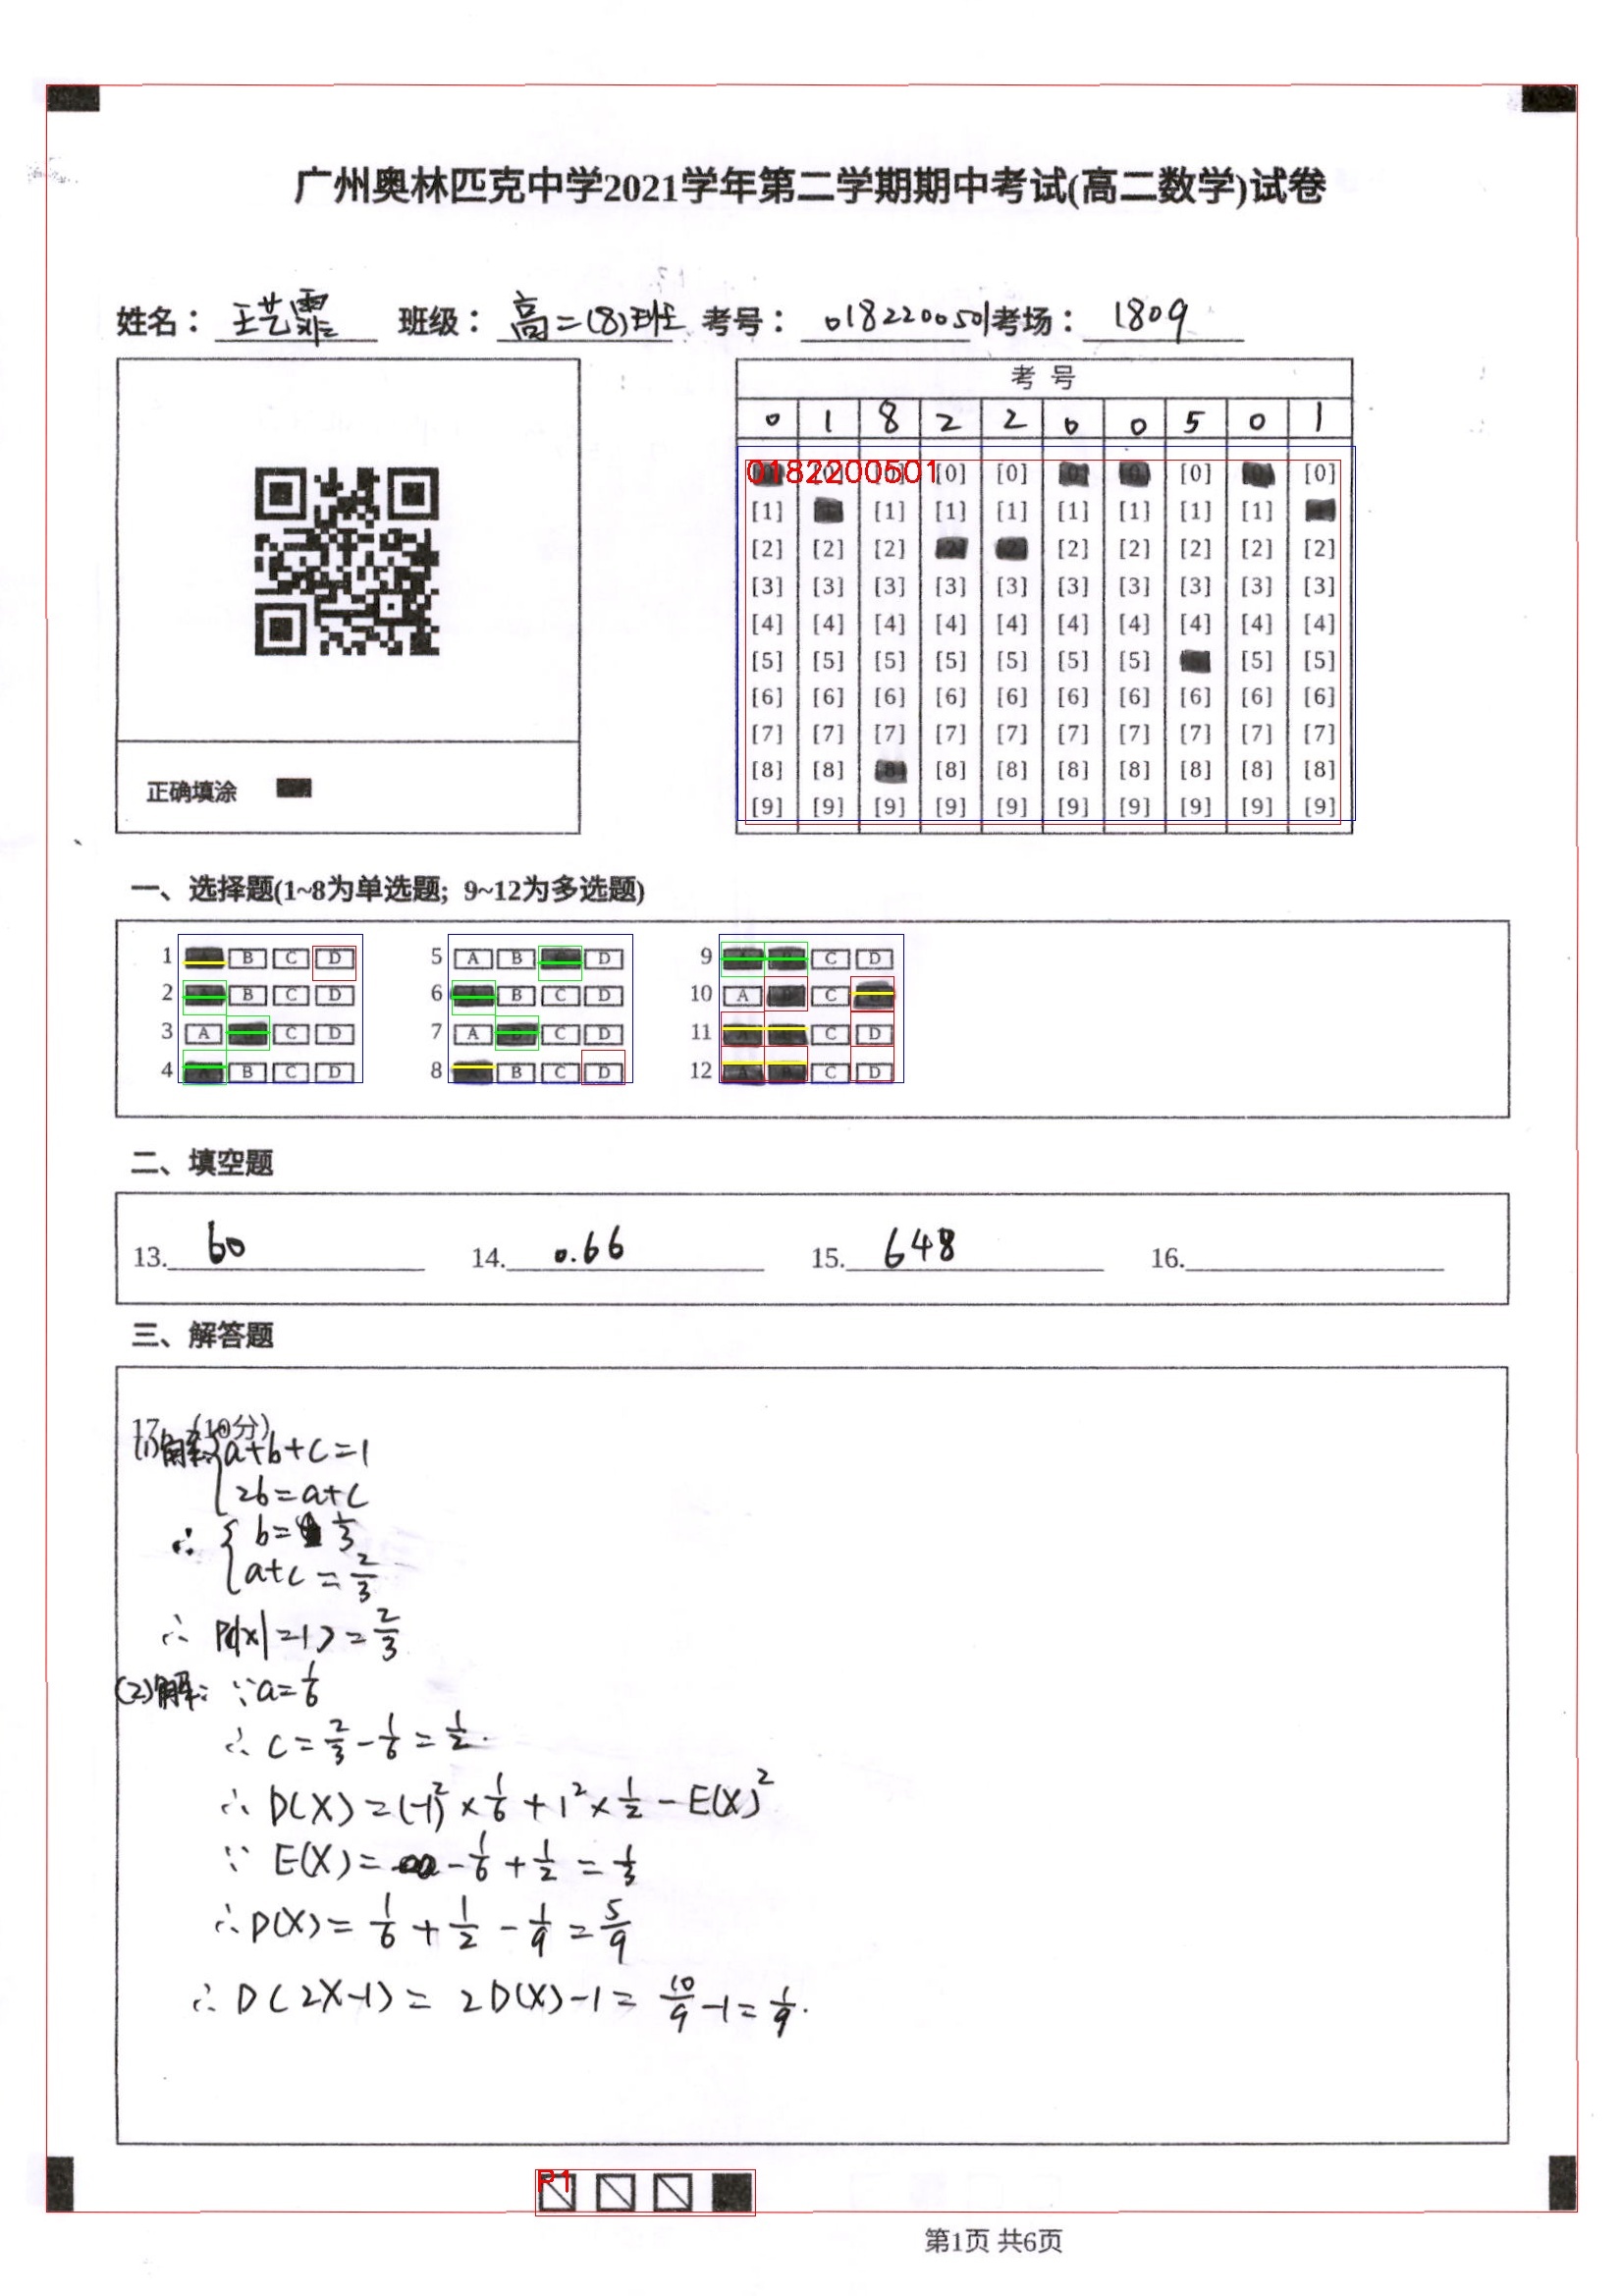 广州奥林匹克中学2021学年第二学期期中考试(高二数学)试卷
姓名： 王艺霏 班级： 高二(8)班 考号： 0182200501 考场： 1809
考 号
0 1 8 2 2 0 0 5 0 1
0182200501 [0] [0] [0] [0]
[1] [1] [1] [1] [1] [1] [1] [1]
[2] [2] [2] [2] [2] [2] [2] [2]
[3] [3] [3] [3] [3] [3] [3] [3] [3] [3]
[4] [4] [4] [4] [4] [4] [4] [4] [4] [4]
[5] [5] [5] [5] [5] [5] [5] [5] [5]
[6] [6] [6] [6] [6] [6] [6] [6] [6] [6]
[7] [7] [7] [7] [7] [7] [7] [7] [7] [7]
[8] [8] [8] [8] [8] [8] [8] [8] [8] [8]
[9] [9] [9] [9] [9] [9] [9] [9] [9] [9]
正确填涂
一、选择题(1~8为单选题; 9~12为多选题)
1 B C D 5 A B D 9 C D
2 B C D 6 B C D 10 A C
3 A C D 7 A C D 11 C D
4 B C D 8 B C D 12 C D
二、填空题
13. 60 14. 0.66 15. 648 16.
三、解答题
17. (10分)
(1)解：{a+b+c=1
{2b=a+c
∴ { b= 1/3
{a+c = 2/3
∴ P(|X|=1) = 2/3
(2)解： ∵a=1/6
∴ c = 2/3 - 1/6 = 1/2.
∴ D(X) = (-1)² × 1/6 + 1² × 1/2 - E(X)²
∵ E(X) = -1/6 + 1/2 = 1/3
∴ D(X) = 1/6 + 1/2 - 1/9 = 5/9
∴ D(2X-1) = 2D(X)-1 = 10/9 -1 = 1/9.
P1
第1页 共6页